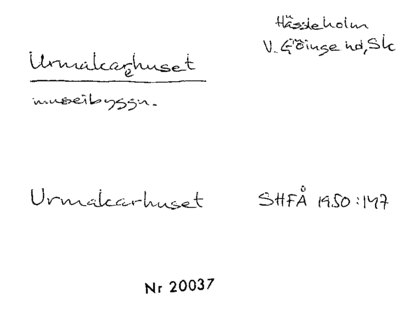 Hässleholm
V. Göinge hd, Sk
Urmakarehuset
museibyggn.
Urmakarhuset SHFÅ 1950:147
Nr 20037